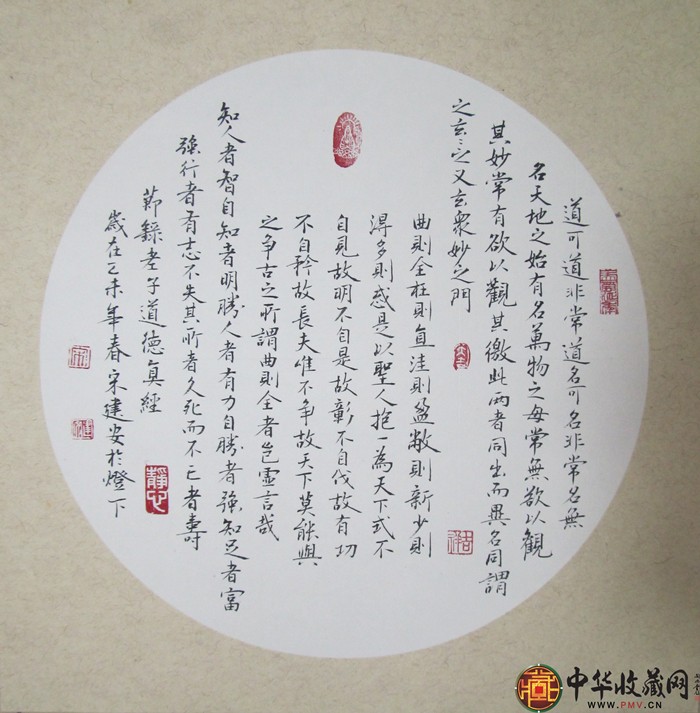 道可道非常道名可名非常名無
名天地之始有名萬物之母常無欲以觀
其妙常有欲以觀其徼此两者同出而異名同謂
之玄玄之又玄衆妙之門
曲則全枉則直洼則盈敝則新少則
得多則惑是以聖人抱一為天下式不
自見故明不自是故彰不自伐故有功
不自矜故長夫唯不争故天下莫能與
之争古之所謂曲則全者豈虚言哉
知人者智自知者明勝人者有力自勝者強知足者富
強行者有志不失其所者久死而不亡者壽
節錄老子道德真經
歲在乙未年春宋建安於燈下
靜心
中华收藏网
WWW.PMV.CN